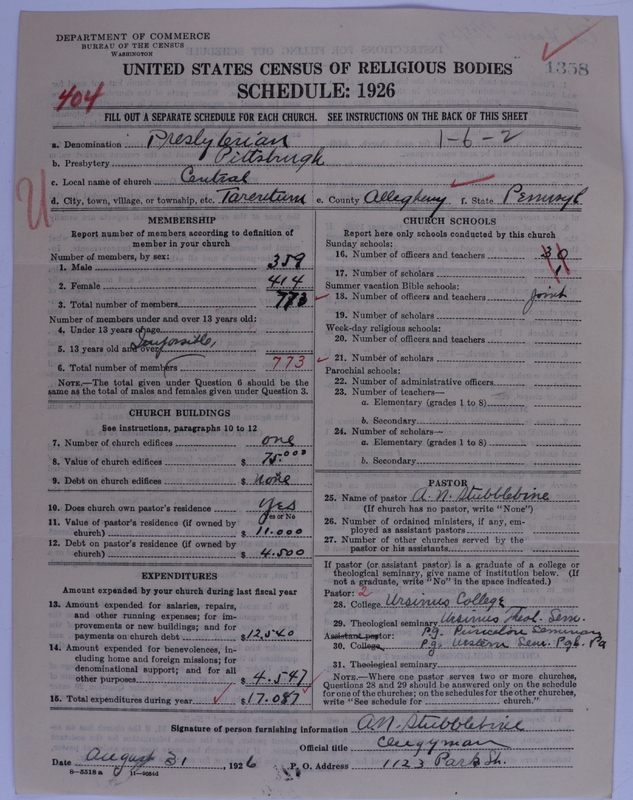 DEPARTMENT OF COMMERCE
BUREAU OF THE CENSUS
WASHINGTON
UNITED STATES CENSUS OF RELIGIOUS BODIES
1358
SCHEDULE: 1926
404
FILL OUT A SEPARATE SCHEDULE FOR EACH CHURCH. SEE INSTRUCTIONS ON THE BACK OF THIS SHEET
a. Denomination Presbyterian 1-6-2
b. Presbytery Pittsburgh
c. Local name of church Central
d. City, town, village, or township, etc. Tarentum e. County Allegheny f. State Pennsyl
U
MEMBERSHIP
Report number of members according to definition of
member in your church
Number of members, by sex:
1. Male 359
2. Female 414
3. Total number of members 773
Number of members under and over 13 years old:
4. Under 13 years of age
5. 13 years old and over
6. Total number of members 773
NOTE.—The total given under Question 6 should be the
same as the total of males and females given under Question 3.
CHURCH BUILDINGS
See instructions, paragraphs 10 to 12
7. Number of church edifices one
8. Value of church edifices $ 75.000
9. Debt on church edifices $ none
10. Does church own pastor's residence yes
Yes or No
11. Value of pastor's residence (if owned by
church) $ 11.000
12. Debt on pastor's residence (if owned by
church) $ 4.500
EXPENDITURES
Amount expended by your church during last fiscal year
13. Amount expended for salaries, repairs,
and other running expenses; for im-
provements or new buildings; and for
payments on church debt $ 12.540
14. Amount expended for benevolences, in-
cluding home and foreign missions; for
denominational support; and for all
other purposes $ 4.547
15. Total expenditures during year $ 17.087
CHURCH SCHOOLS
Report here only schools conducted by this church
Sunday schools:
16. Number of officers and teachers 30
17. Number of scholars
Summer vacation Bible schools:
18. Number of officers and teachers Joint
19. Number of scholars
Week-day religious schools:
20. Number of officers and teachers
21. Number of scholars
Parochial schools:
22. Number of administrative officers
23. Number of teachers—
a. Elementary (grades 1 to 8)
b. Secondary
24. Number of scholars—
a. Elementary (grades 1 to 8)
b. Secondary
PASTOR
25. Name of pastor A. N. Stubblebine
(If church has no pastor, write "None")
26. Number of ordained ministers, if any, em-
ployed as assistant pastors
27. Number of other churches served by the
pastor or his assistants
If pastor (or assistant pastor) is a graduate of a college or
theological seminary, give name of institution below. (If
not a graduate, write "No" in the space indicated.)
Pastor: 2
28. College Ursinus College
29. Theological seminary Ursinus Theol. Sem.
Assistant pastor: Pg. Princeton Seminary
30. College Pg. Western Sem. Pgh. Pa
31. Theological seminary
NOTE.—Where one pastor serves two or more churches,
Questions 28 and 29 should be answered only on the schedule
for one of the churches; on the schedules for the other churches,
write "See schedule for church."
Signature of person furnishing information A. N. Stubblebine
Official title Clergyman
Date August 31, 1926 P. O. Address 1123 Park St.
8—5518 a